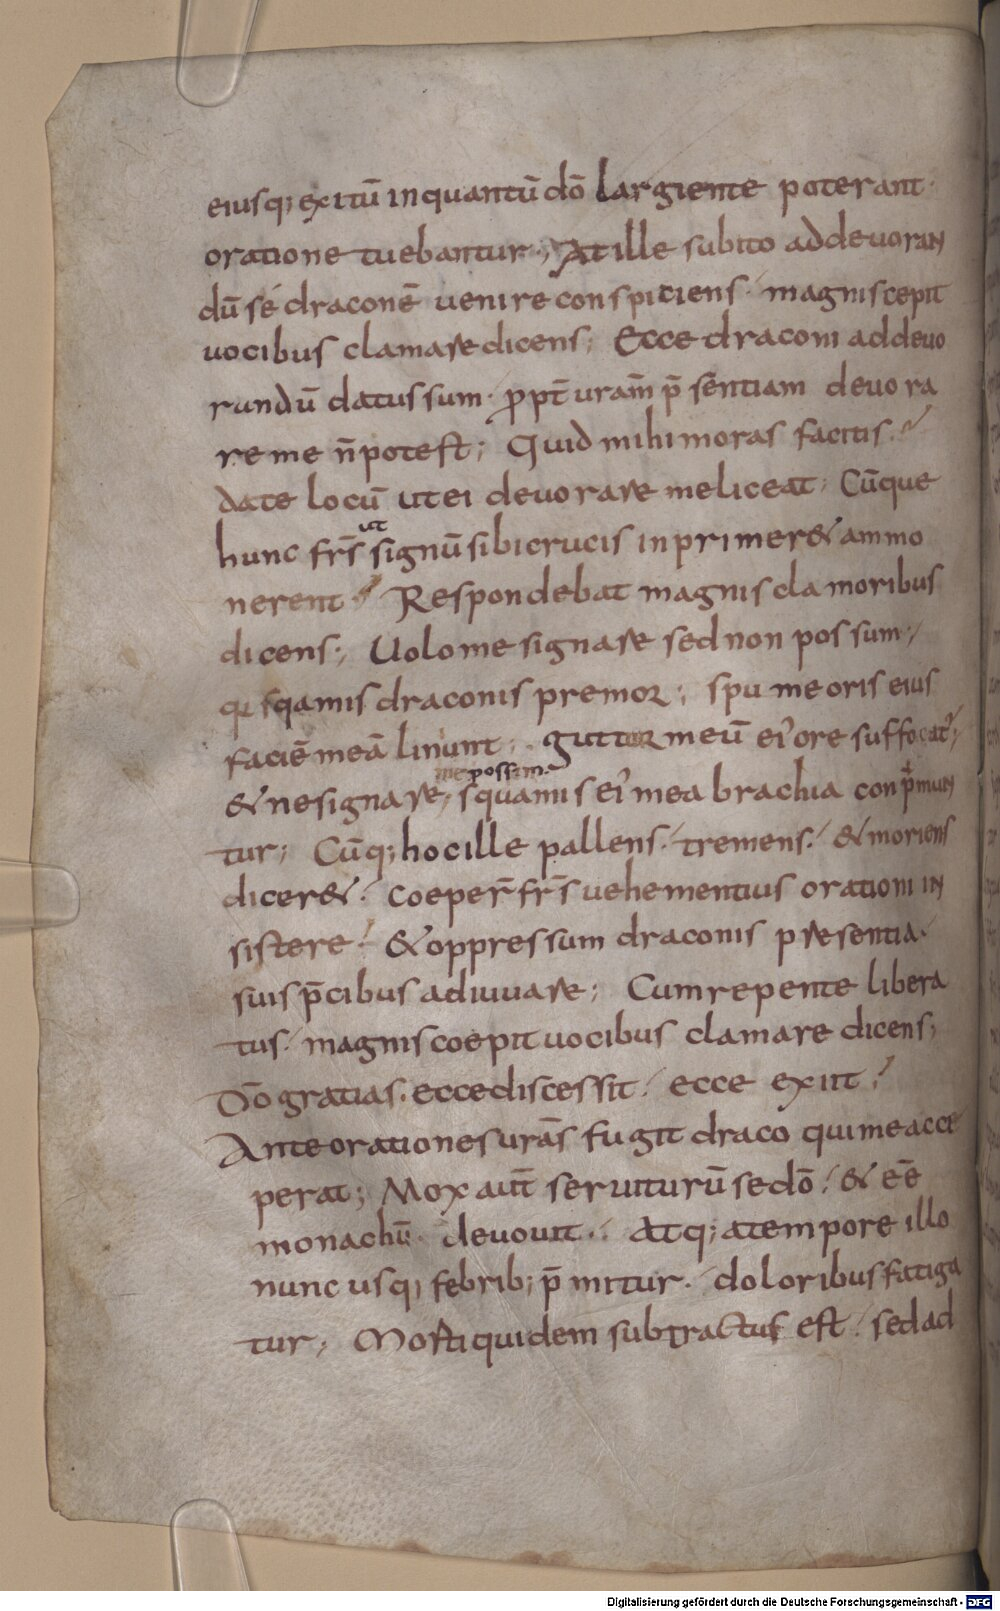 eiusq; exitū inquantū dō largiente poterant
oratione tuebantur; At ille subito addeuoran
dū se draconē uenire conspiciens magnis cepit
uocibus clamare dicens; Ecce draconi addeuo
randū datus sum ꝓpt̄ uram̄ p̄sentiam deuora
re me n̄ potest; Quid mihi moras facitis
date locū ut ei deuorare me liceat; Cūque
hunc fr̄s ut signū sibi crucis inprimer& ammo
nerent Respondebat magnis clamoribus
dicens; Uolo me signare sed non possum;
qi sqamis draconis premor; spume oris eius
faciē meā linunt; guttur meū ei' ore suffocat';
& ne signare me possim squamis ei' mea brachia conp̄mun
tur; Cūq; hoc ille pallens. tremens. & moriens
dicer&. coeper̄ fr̄s uehementius orationi in
sistere. & oppressum draconis presentia.
suis p̄cibus adiuuare; Cum repente libera
tus. magnis coepit uocibus clamare dicens;
Dō gratias. ecce discessit. ecce exiit.
Ante orationes urās fugit draco qui me acce
perat; Mox aut̄ seruiturū se dō. & eē
monachū. deuouit. Atq; a tempore illo
nunc usq; febrib; p̄mitur. doloribus fatiga
tur; Morti quidem subtractus est. sed ad
Digitalisierung gefördert durch die Deutsche Forschungsgemeinschaft - DFG